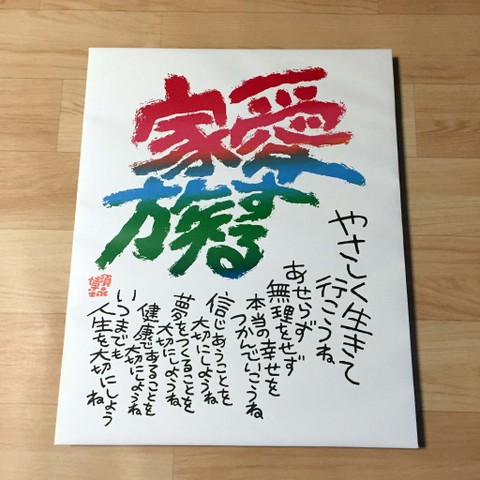 愛する
家族
やさしく生きて
行こうね
あせらず
無理をせず
本当の幸せを
つかんでいこうね
信じあうことを
大切にしようね
夢をつくることを
大切にしようね
健康であることを
大切にしようね
いつまでも
人生を大切にしようね